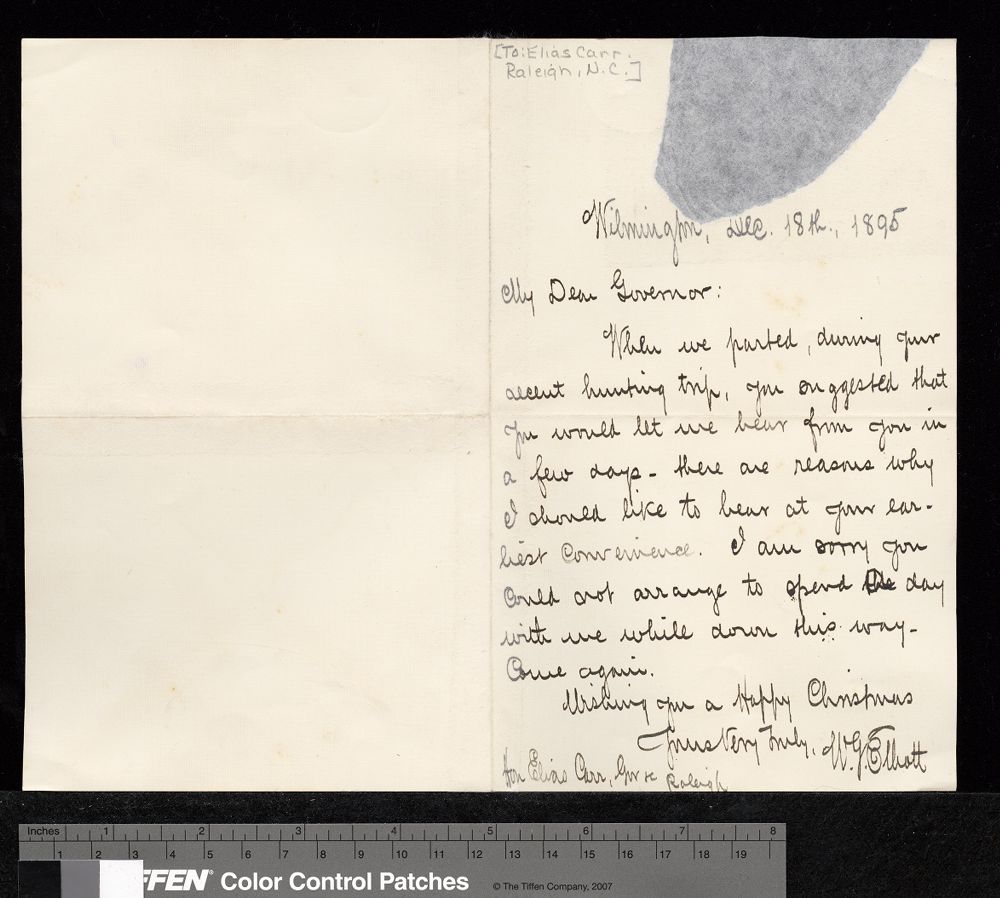 [To: Elias Carr.
Raleigh, N.C.]
Wilmington, Dec. 18th., 1895
My Dear Governor:
When we parted, during your
recent hunting trip, you suggested that
you would let me hear from you in
a few days - there are reasons why
I should like to hear at your ear-
liest convenience. I am sorry you
could not arrange to spend the day
with me while down this way -
Come again.
Wishing you a Happy Christmas
Yours Very Truly, W. G. Elliott
Hon Elias Carr, Gov &c
Raleigh
Inches 1 2 3 4 5 6 7 8
1 2 3 4 5 6 7 8 9 10 11 12 13 14 15 16 17 18 19
FFEN® Color Control Patches © The Tiffen Company, 2007